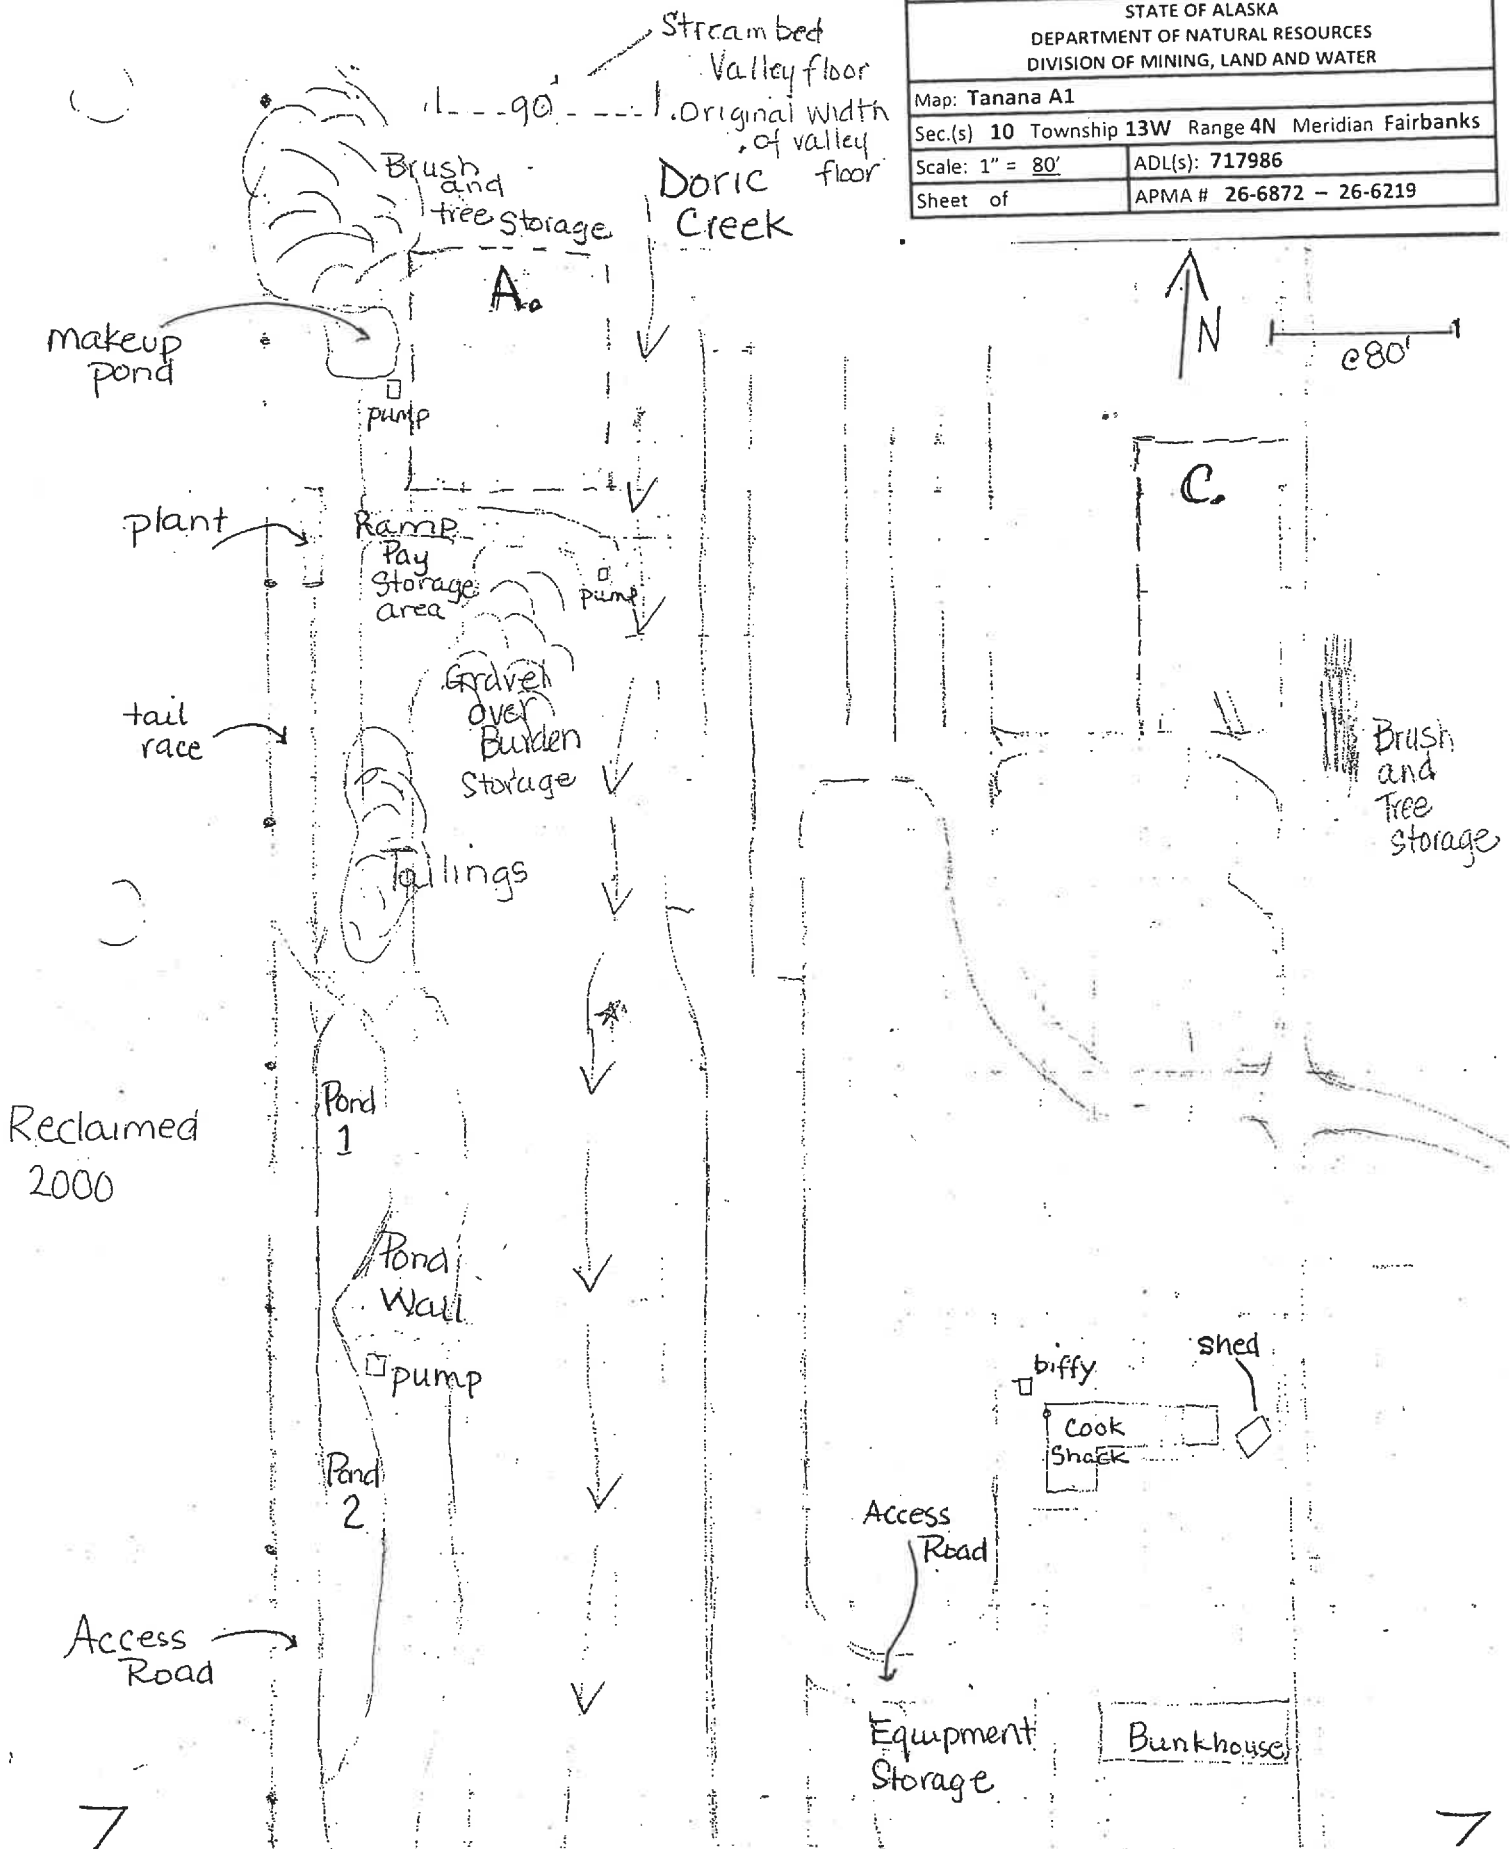 STATE OF ALASKA
DEPARTMENT OF NATURAL RESOURCES
DIVISION OF MINING, LAND AND WATER
Map: Tanana A1
Sec.(s) 10 Township 13W Range 4N Meridian Fairbanks
Scale: 1" = 80'
ADL(s): 717986
Sheet of
APMA # 26-6872 – 26-6219
Stream bed
Valley floor
90'
Original width
of valley
floor
Brush
and
tree storage
Doric
Creek
A.
N
@80'
makeup
pond
pump
C.
plant
Ramp
Pay
Storage
area
pump
Gravel
over
Burden
Storage
tail
race
Brush
and
Tree
storage
Tailings
Pond
1
Reclaimed
2000
Pond
Wall
pump
biffy
shed
Cook
Shack
Pond
2
Access
Road
Access
Road
Equipment
Storage
Bunkhouse